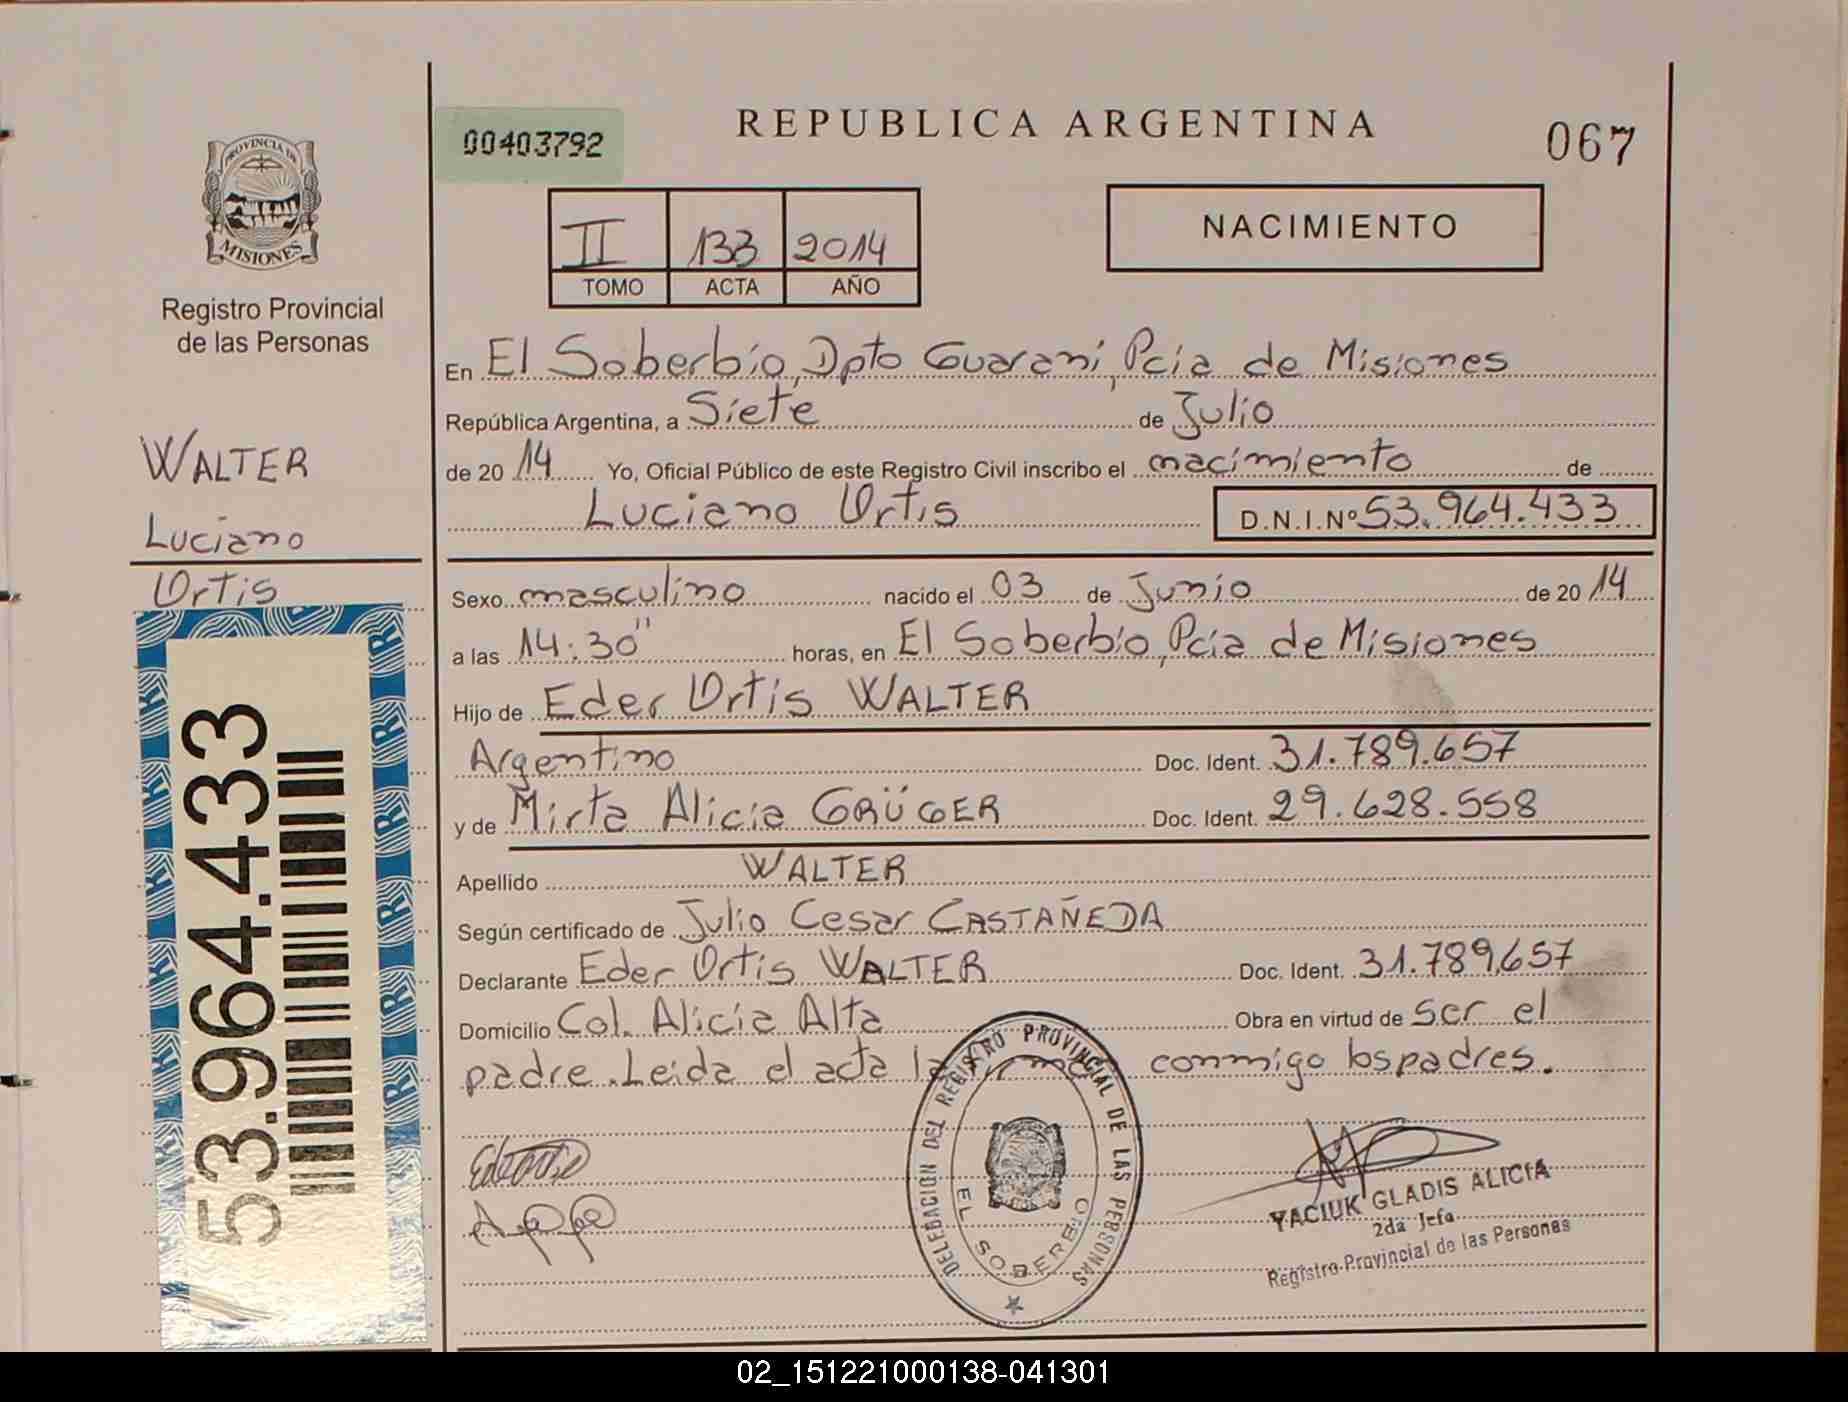 REPUBLICA ARGENTINA
00403792
067
PROVINCIA DE
MISIONES
Registro Provincial
de las Personas
II 133 2014
TOMO ACTA AÑO
NACIMIENTO
En El Soberbio, Dpto Guaraní, Pcia de Misiones
República Argentina, a Siete de Julio
de 20 14 Yo, Oficial Público de este Registro Civil inscribo el nacimiento de
Luciano Ortis D.N.I.Nº 53.964.433
WALTER
Luciano
Ortis
53.964.433
Sexo masculino nacido el 03 de Junio de 20 14
a las 14:30" horas, en El Soberbio, Pcia de Misiones
Hijo de Eder Ortis WALTER
Argentino Doc. Ident. 31.789.657
y de Mirta Alicia GRÜGER Doc. Ident. 29.628.558
Apellido WALTER
Según certificado de Julio Cesar CASTAÑEDA
Declarante Eder Ortis WALTER Doc. Ident. 31.789.657
Domicilio Col. Alicia Alta Obra en virtud de ser el
padre. Leida el acta la conmigo los padres.
DELEGACION DEL REGISTRO PROVINCIAL DE LAS PERSONAS
EL SOBERBIO
YACIUK GLADIS ALICIA
2da Jefa
Registro Provincial de las Personas
02_151221000138-041301